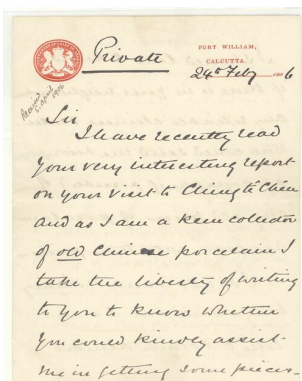 Private
FORT WILLIAM,
CALCUTTA.
24th Feby 1906
Received
5 April
1906
Sir
I have recently read
your very interesting report
on your visit to Chêng tu
and as I am a keen collector
of old Chinese porcelain I
take the liberty of writing
to you to know whether
you could kindly assist
me in getting some pieces-